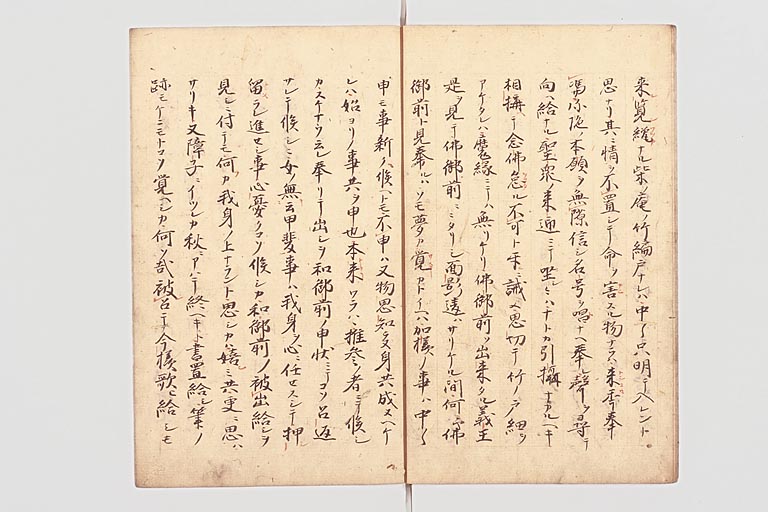 来覧纔ナル柴ノ庵ノ竹編戸ナレハ中々只明テ入レント
思ナリ其ニ情ヲ不置シテ命ヲ害スル物ナラハ来奉
馮弥陀ノ本願ヲ無隙信シ名号ヲ唱ヘ奉ル声ヲ尋テ
向ヘ給ナル聖衆ノ来迎ニテ坐セハナトカ引摂ナカルヘキ
相構テ念仏怠ル不可ト互ニ誡ヘ思切テ竹ノ戸ヲ細ヲ
アケタレハ魔縁ニテハ無リケリ仏御前ソ出来タル義王
是ヲ見テ仏御前ニミタリシ面影違ハサリケル間何ニ仏
御前ト見奉ルハソモ夢カ覚カトイヘハ加様ノ事ハ中々
申セ事新ク候ヘトモ不申ハ又物思知ヌ身共成ヌヘケ
レハ始ヨリノ事共ヲ申也本来ワラハ推参ノ者ニテ候シ
カスケナウ云レ奉リテ出シヲ和御前ノ申状ニテコソ召返
サレテ候シニ女ノ無云甲斐事ハ我身ヲ心ニ任セスシテ押
留ラレ進セシ事心憂クコソ候シカ和御前ノ被出給シヲ
見シニ付テモ何カ我身ノ上ナラント思シカハ嬉ト共更ニ思ハ
サリキ又障子ニイツレカ秋ニアハテ終ヘキト書置給シ筆ノ
跡ニケニモトコソ覚ヘシカ何ソ哉被召テ今様歌ヒ給シモ